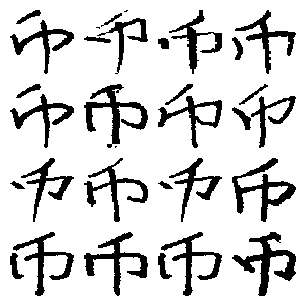 币币币币
币币币币
币币币币
币币币币